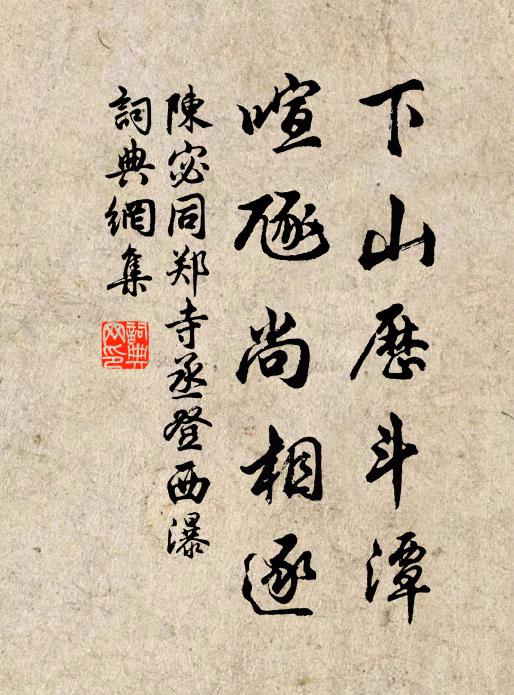 下山历斗潭
喧豗尚相逐
陳宓同郑寺丞登西瀑
詞典網集
詞典网印